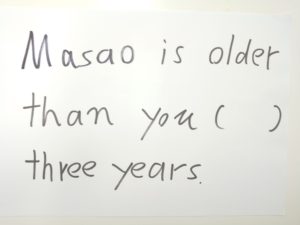 Masao is older
than you (   )
three years.